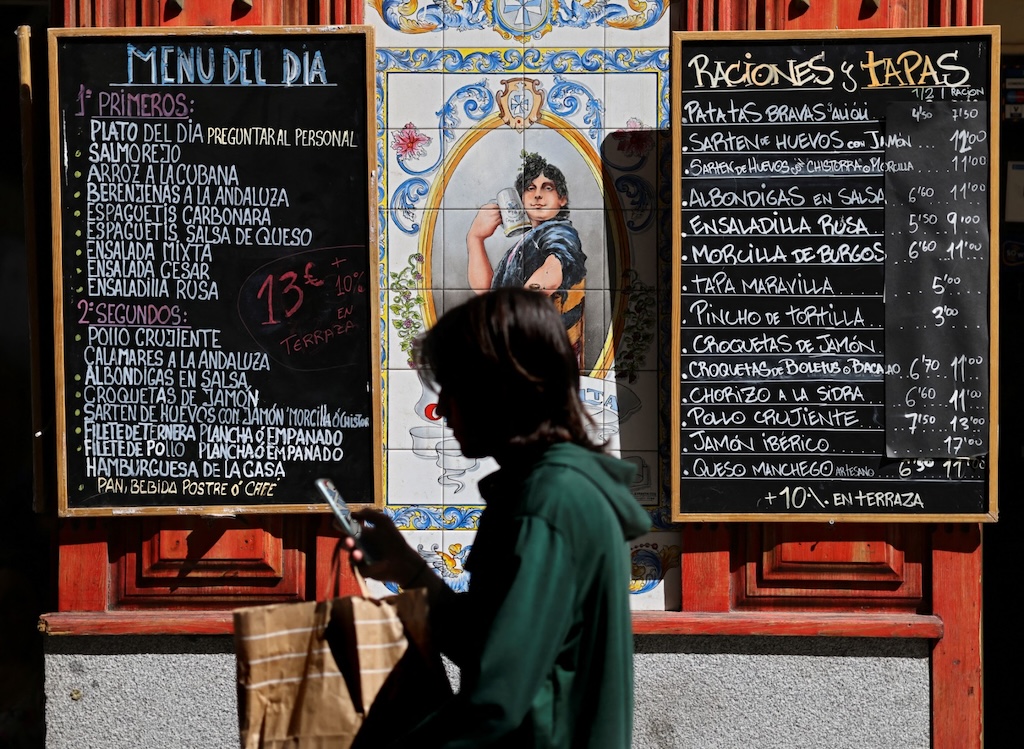 MENU DEL DÍA
1º PRIMEROS:
PLATO DEL DÍA PREGUNTAR AL PERSONAL
SALMOREJO
ARROZ A LA CUBANA
BERENJENAS A LA ANDALUZA
ESPAGUETIS CARBONARA
ESPAGUETIS SALSA DE QUESO
ENSALADA MIXTA
ENSALADA CESAR
ENSALADILLA ROSA
13€ + 10%
EN
TERRAZA
2º SEGUNDOS:
POLLO CRUJIENTE
CALAMARES A LA ANDALUZA
ALBONDIGAS EN SALSA
CROQUETAS DE JAMÓN
SARTEN DE HUEVOS CON JAMÓN MORCILLA Ó CHISTOR
FILETE DE TERNERA PLANCHA Ó EMPANADO
FILETE DE POLLO PLANCHA Ó EMPANADO
HAMBURGUESA DE LA CASA
PAN, BEBIDA POSTRE Ó CAFE
RACIONES y TAPAS
1/2 1 RACION
PATATAS BRAVAS Y ALIOLI 4'50 7'50
SARTEN DE HUEVOS CON JAMÓN 12'00
SARTEN DE HUEVOS CHISTORRA O MORCILLA 11'00
ALBONDIGAS EN SALSA 6'60 11'00
ENSALADILLA RUSA 5'50 9'00
MORCILLA DE BURGOS 6'60 11'00
TAPA MARAVILLA 5'00
PINCHO DE TORTILLA 3'00
CROQUETAS DE JAMÓN
CROQUETAS DE BOLETUS O BACALAO 6'70 11'00
CHORIZO A LA SIDRA 6'60 11'00
POLLO CRUJIENTE 7'50 13'00
JAMÓN IBÉRICO 17'00
QUESO MANCHEGO ARTESANO 6'50 11'00
+10% EN TERRAZA